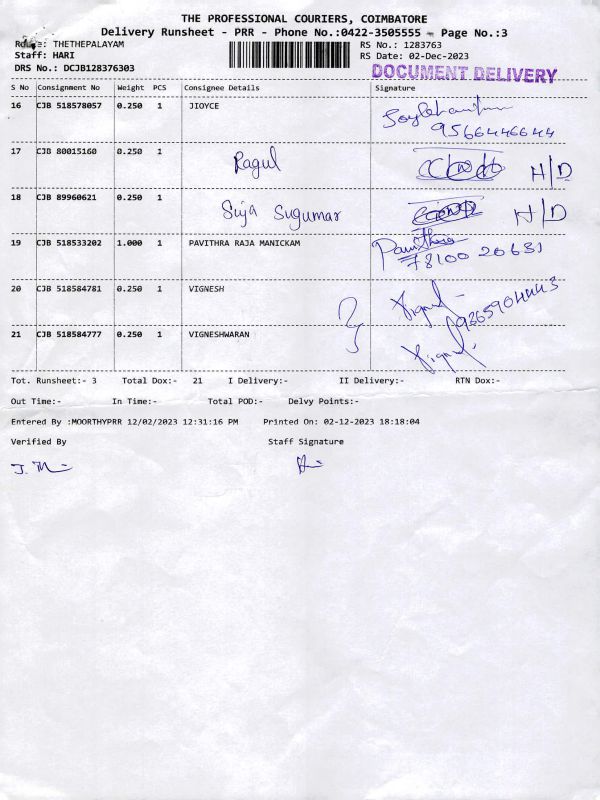 THE PROFESSIONAL COURIERS, COIMBATORE
Delivery Runsheet - PRR - Phone No.:0422-3505555 - Page No.:3
Route: THETHEPALAYAM RS No.: 1283763
Staff: HARI RS Date: 02-Dec-2023
DRS No.: DCJB128376303 DOCUMENT DELIVERY
S No Consignment No Weight PCS Consignee Details Signature
16 CJB 518578057 0.250 1 JIOYCE
9566446644
17 CJB 80015160 0.250 1 Ragul H/D
18 CJB 89960621 0.250 1 Suja Sugumar H/D
19 CJB 518533202 1.000 1 PAVITHRA RAJA MANICKAM Pavithra
78100 20631
20 CJB 518584781 0.250 1 VIGNESH
9365904443
21 CJB 518584777 0.250 1 VIGNESHWARAN
Tot. Runsheet:- 3 Total Dox:- 21 I Delivery:- II Delivery:- RTN Dox:-
Out Time:- In Time:- Total POD:- Delvy Points:-
Entered By :MOORTHYPRR 12/02/2023 12:31:16 PM Printed On: 02-12-2023 18:18:04
Verified By Staff Signature